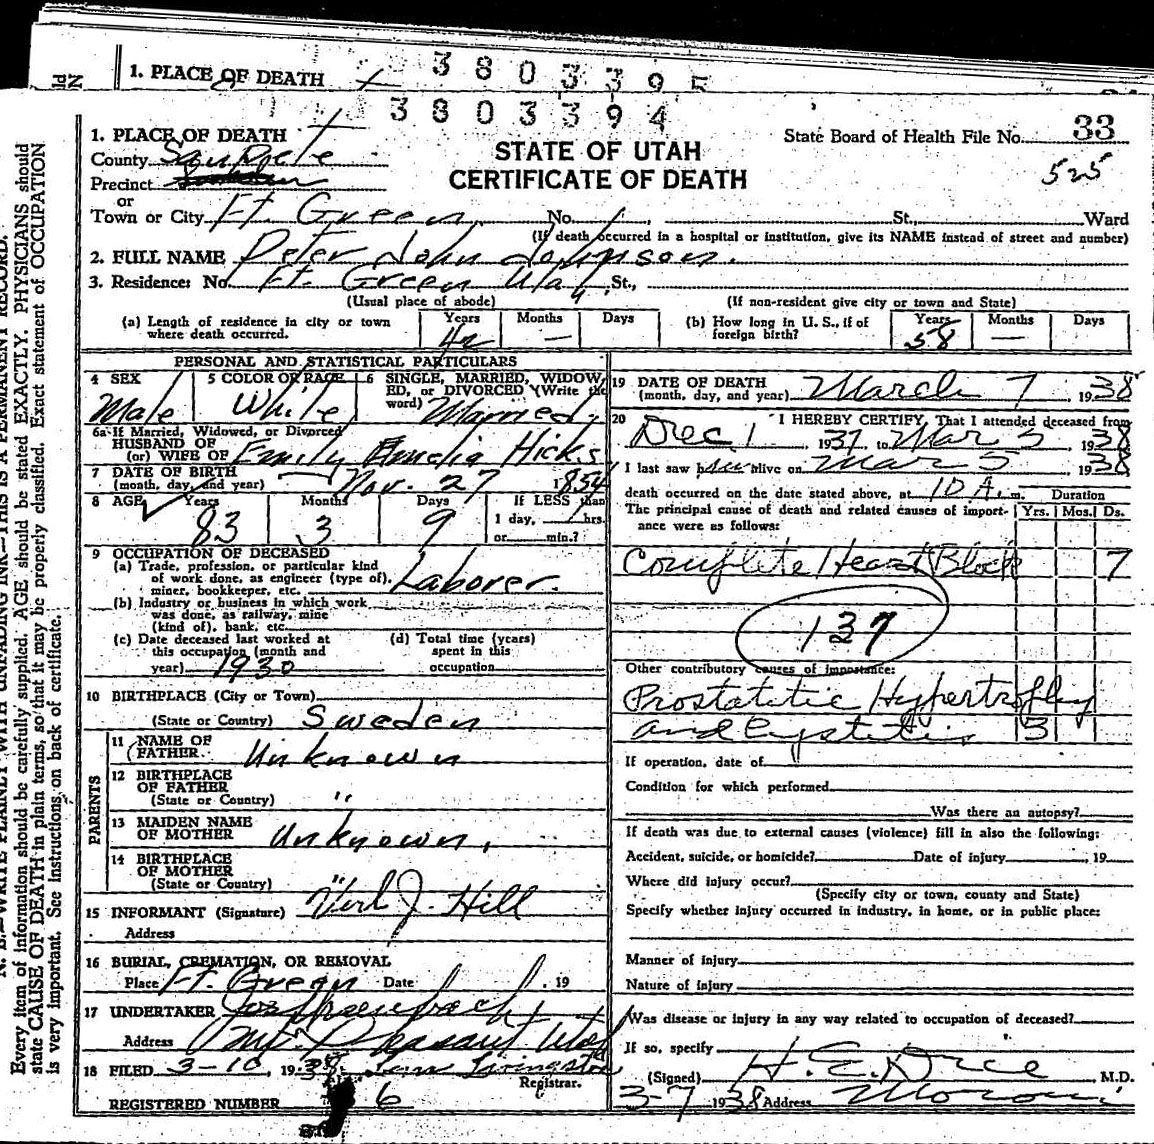 1. PLACE OF DEATH
3803395
3803394
1. PLACE OF DEATH
County Sanpete
Precinct
or
Town or City Ft. Green No. St., Ward
(If death occurred in a hospital or institution, give its NAME instead of street and number)
State Board of Health File No. 33
525
STATE OF UTAH
CERTIFICATE OF DEATH
2. FULL NAME Peter John Johnson.
3. Residence: No. Ft. Green Utah St.,
(Usual place of abode) (If non-resident give city or town and State)
(a) Length of residence in city or town where death occurred. Years 42 Months — Days
(b) How long in U. S., if of foreign birth? Years 58 Months — Days
PERSONAL AND STATISTICAL PARTICULARS
4 SEX Male
5 COLOR OR RACE White
6 SINGLE, MARRIED, WIDOWED, or DIVORCED (Write the word) Married
6a If Married, Widowed, or Divorced
HUSBAND OF
(or) WIFE OF Emily Amelia Hicks
7 DATE OF BIRTH
(month, day, and year) Nov. 27 1854
8 AGE Years 83 Months 3 Days 9 If LESS than
1 day, hrs.
or min.?
9 OCCUPATION OF DECEASED
(a) Trade, profession, or particular kind
of work done, as engineer (type of),
miner, bookkeeper, etc. Laborer.
(b) Industry or business in which work
was done, as railway, mine
(kind of), bank, etc.
(c) Date deceased last worked at
this occupation (month and
year) 1930
(d) Total time (years)
spent in this
occupation
10 BIRTHPLACE (City or Town)
(State or Country) Sweden
PARENTS
11 NAME OF
FATHER Unknown
12 BIRTHPLACE
OF FATHER
(State or Country) "
13 MAIDEN NAME
OF MOTHER Unknown,
14 BIRTHPLACE
OF MOTHER
(State or Country) "
15 INFORMANT (Signature) Verl J. Hill
Address
16 BURIAL, CREMATION, OR REMOVAL
Place Ft. Green Date , 19
17 UNDERTAKER
Address Mt. Pleasant Utah
18 FILED 3-10, 1938 Livingston
Registrar.
REGISTERED NUMBER 6
19 DATE OF DEATH
(month, day, and year) March 7 1938
20 I HEREBY CERTIFY, That I attended deceased from
Dec 1 1937 to Mar 5 1938
I last saw him alive on Mar 5 1938
death occurred on the date stated above, at 10 A. m. Duration
The principal cause of death and related causes of importance were as follows: Yrs. Mos. Ds.
Complete Heart Block 7
137
Other contributory causes of importance:
Prostatitic Hypertrophy
and Cystitis 3
If operation, date of
Condition for which performed
Was there an autopsy?
If death was due to external causes (violence) fill in also the following:
Accident, suicide, or homicide? Date of injury , 19
Where did injury occur?
(Specify city or town, county and State)
Specify whether injury occurred in industry, in home, or in public place:
Manner of injury
Nature of injury
Was disease or injury in any way related to occupation of deceased?
If so, specify
(Signed) H. E. Dice M.D.
3-7 1938 Address Moroni
N. B.—WRITE PLAINLY WITH UNFADING INK—THIS IS A PERMANENT RECORD.
Every item of information should be carefully supplied. AGE should be stated EXACTLY. PHYSICIANS should
state CAUSE OF DEATH in plain terms, so that it may be properly classified. Exact statement of OCCUPATION
is very important. See instructions on back of certificate.